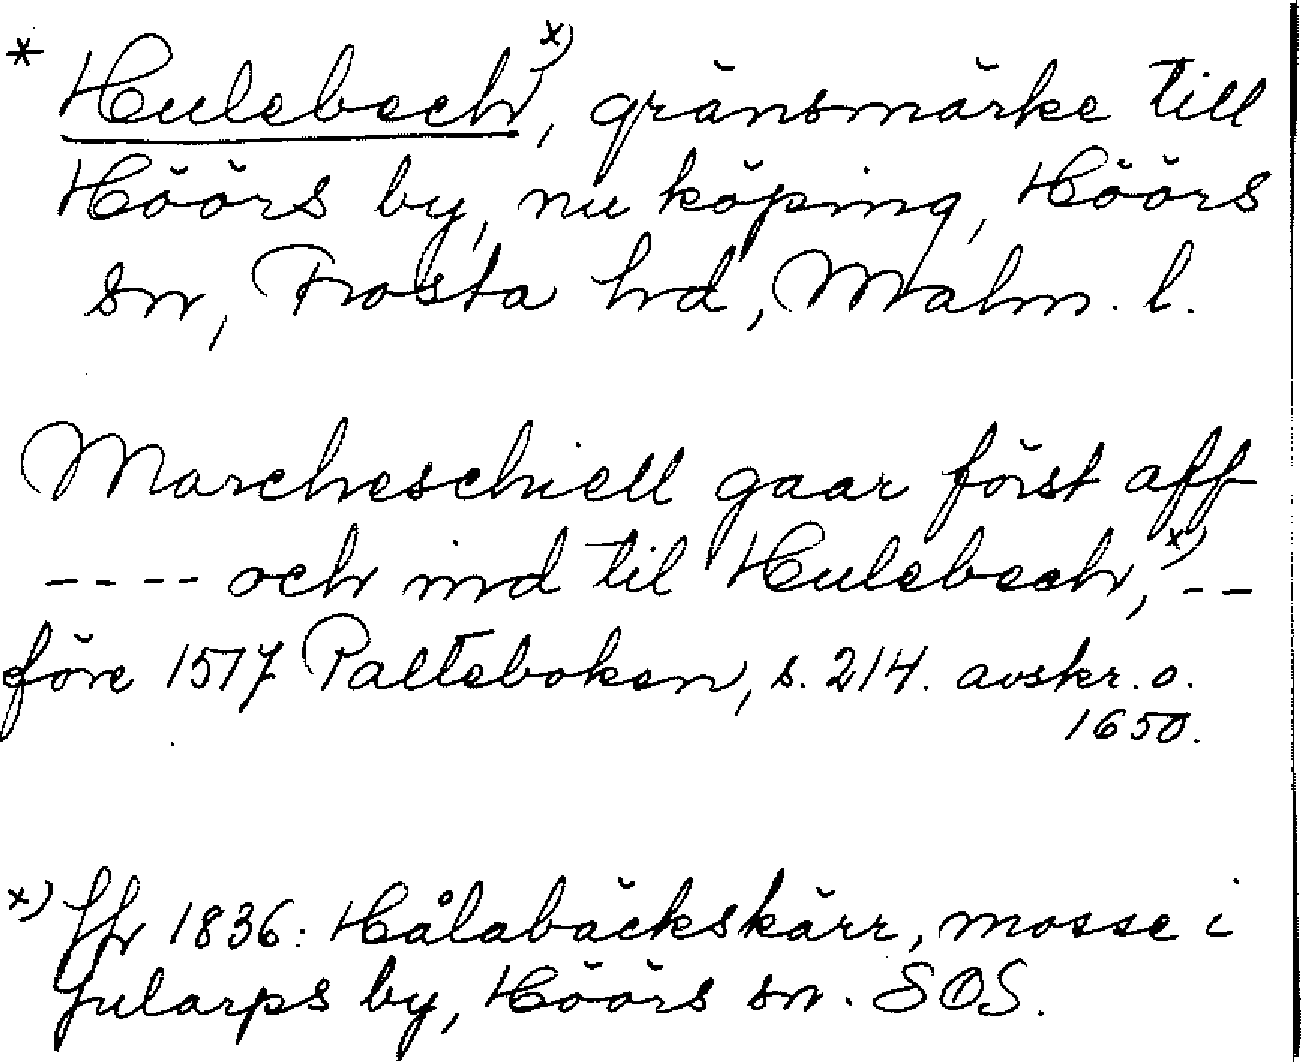 * Hulebech x), gränsmärke till
Höörs by, nu köping, Höörs
sn, Frosta hd, Malm. l.
Marcheschiell gaar först aff
---- och ind til Hulebech, x) --
före 1517 Palteboken, s. 214. avskr. o.
1650.
x) Jfr 1836: Hålabäckskärr, mosse i
Jularps by, Höörs sn. SOS.